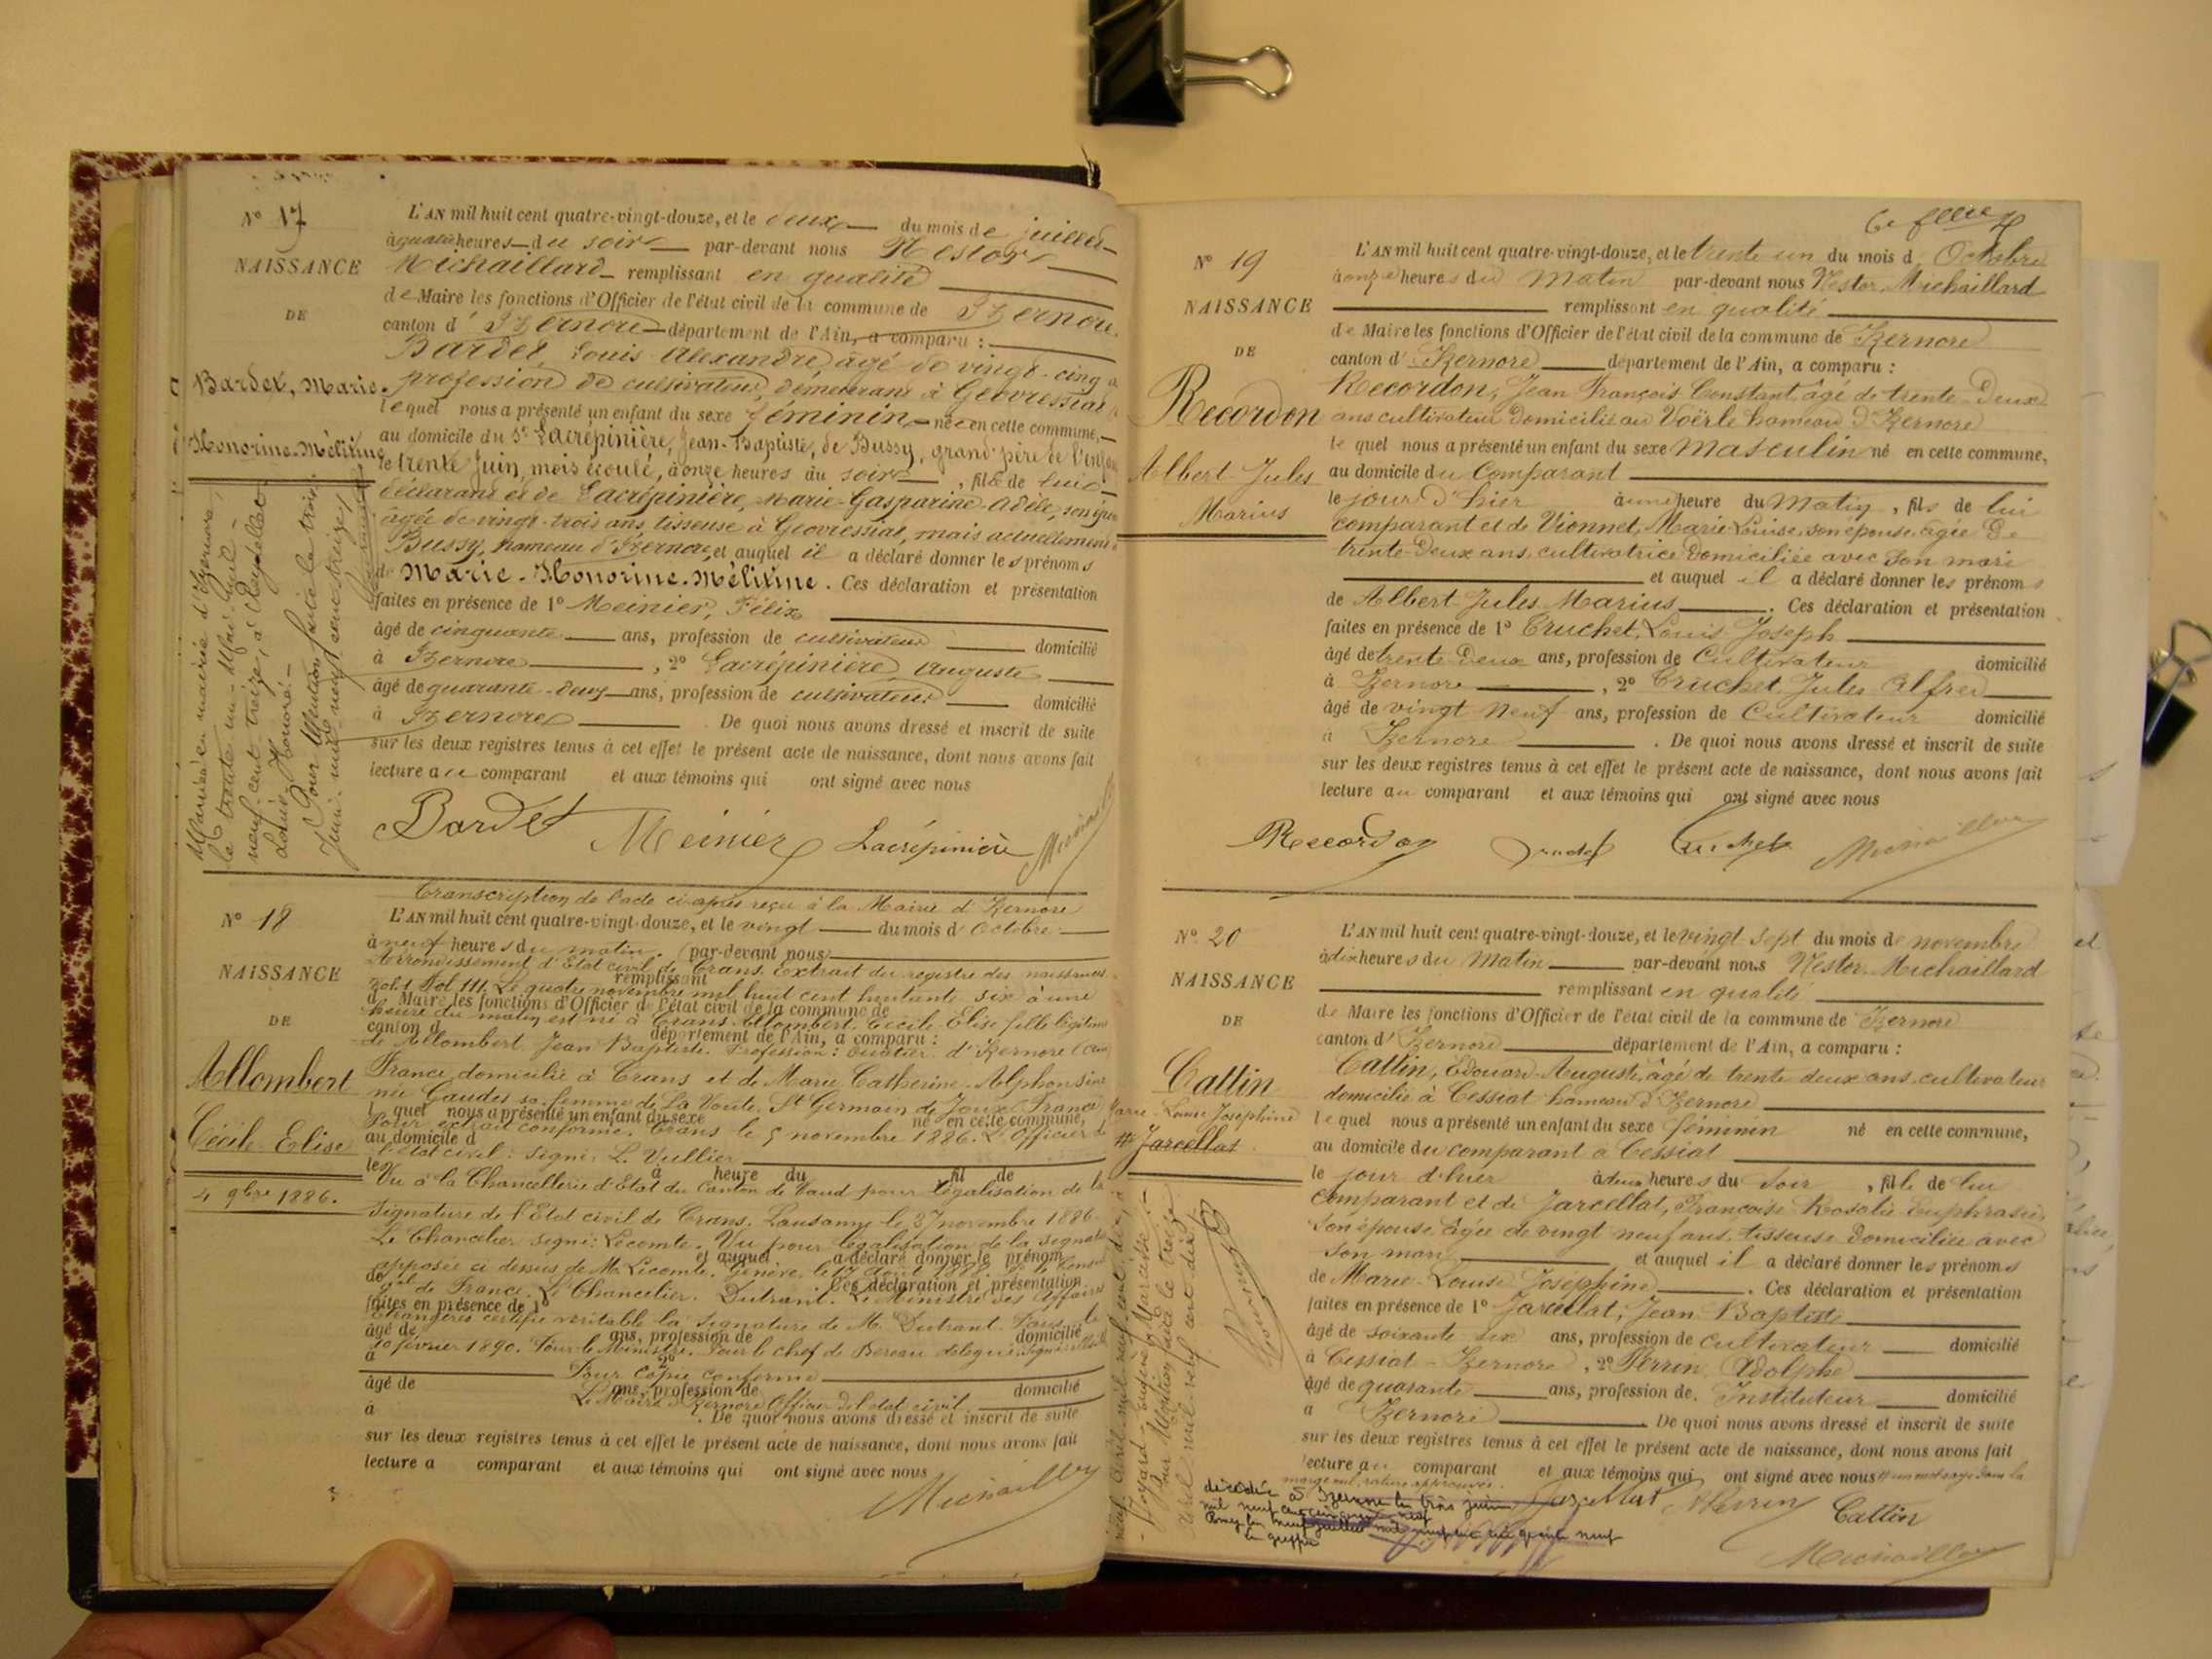 N° 17
NAISSANCE
DE
Bardet, Marie
Honorine-Mélitine
L'AN mil huit cent quatre-vingt-douze, et le deux du mois de juillet
à quatre heures du soir par-devant nous Nestor
Michaillard remplissant en qualité
de Maire les fonctions d'Officier de l'état civil de la commune de Izernore
canton d'Izernore département de l'Ain, a comparu :
Bardet Louis Alexandre, âgé de vingt-cinq
profession de cultivateur, demeurant à Géovressiat
lequel nous a présenté un enfant du sexe féminin, née en cette commune,
au domicile du Sr Lacrépinière, Jean-Baptiste, de Bussy, grand père de l'enfant
le trente juin, mois écoulé, à onze heures du soir, fille de lui
déclarant et de Lacrépinière, Marie-Gasparine-Adèle, son
âgée de vingt-trois ans, tisseuse à Géovressiat, mais actuellement
Bussy, hameau d'Izernore, et auquel il a déclaré donner les prénoms
de Marie-Honorine-Mélitine. Ces déclaration et présentation
faites en présence de 1° Meinier, Félix
âgé de cinquante ans, profession de cultivateur domicilié
à Izernore, 2° Lacrépinière Auguste
âgé de quarante-deux ans, profession de cultivateur domicilié
à Izernore. De quoi nous avons dressé et inscrit de suite
sur les deux registres tenus à cet effet le présent acte de naissance, dont nous avons fait
lecture au comparant et aux témoins qui ont signé avec nous
Mariée en mairie d'Izernore
le trente un Mai mil
neuf cent treize, à
Louis Honoré.
Pour Mention faite le trois
Juin mil neuf cent treize
Bardet Meinier Lacrépinière
N° 18
NAISSANCE
DE
Allombert
Cécile Elise
4 9bre 1886.
Transcription de l'acte ci-après reçu à la Mairie d'Izernore
L'AN mil huit cent quatre-vingt-douze, et le vingt du mois d'Octobre
à neuf heures du matin. (par-devant nous
Arrondissement d'Etat civil de Crans. Extrait du registre des naissances
remplissant
Fol 111. Le quatre novembre mil huit cent huitante six à une
de Maire les fonctions d'Officier de l'état civil de la commune de
heure du matin est né à Crans Allombert Cécile Elise fille légitime
canton d département de l'Ain, a comparu :
de Allombert Jean Baptiste. Profession : ouvrier d'Izernore (Ain)
France domicilié à Crans et de Marie Catherine Alphonsine
née Gaudet sa femme de La Voute, St Germain de Joux (France)
l quel nous a présenté un enfant du sexe né en cette commune,
Pour extrait conforme. Crans le 5 novembre 1886. L'Officier de
au domicile d
l'état civil : signé : L. Vullier
le à heure du , fil de
Vu à la Chancellerie d'Etat du Canton de Vaud pour légalisation de la
signature de l'Etat civil de Crans. Lausanne le 27 novembre 1886.
Le Chancelier signé : Lecomte. Vu pour légalisation de la signature
et auquel a déclaré donner le prénom
apposée ci dessus de M. Lecomte. Genève, le 17 août 1888.
de . Ces déclaration et présentation
de France. Le Chancelier. Dutrant. Le Ministre des Affaires
faites en présence de 1°
Etrangères certifie véritable la signature de M. Dutrant.
âgé de ans, profession de domicilié
10 février 1890. Pour le Ministre. Pour le chef de Bureau délégué
à , 2°
Pour copie conforme
âgé de ans, profession de domicilié
Le Maire d'Izernore Officier de l'état civil
à . De quoi nous avons dressé et inscrit de suite
sur les deux registres tenus à cet effet le présent acte de naissance, dont nous avons fait
lecture a comparant et aux témoins qui ont signé avec nous
Michaillard
N° 19
NAISSANCE
DE
Recordon
Albert Jules
Marius
L'AN mil huit cent quatre-vingt-douze, et le trente un du mois d'Octobre
à onze heures du matin par-devant nous Nestor Michaillard
remplissant en qualité
de Maire les fonctions d'Officier de l'état civil de la commune de Izernore
canton d'Izernore département de l'Ain, a comparu :
Recordon, Jean François Constant, âgé de trente-deux
ans cultivateur domicilié au Voërle hameau d'Izernore
lequel nous a présenté un enfant du sexe masculin né en cette commune,
au domicile du comparant
le jour d'hier à une heure du matin, fils de lui
comparant et de Vionnet, Marie Louise, son épouse, âgée de
trente-deux ans, cultivatrice domiciliée avec son mari
et auquel il a déclaré donner les prénoms
de Albert Jules Marius. Ces déclaration et présentation
faites en présence de 1° Truchet, Louis Joseph
âgé de trente-deux ans, profession de Cultivateur domicilié
à Izernore, 2° Truchet Jules Alfred
âgé de vingt neuf ans, profession de Cultivateur domicilié
à Izernore. De quoi nous avons dressé et inscrit de suite
sur les deux registres tenus à cet effet le présent acte de naissance, dont nous avons fait
lecture au comparant et aux témoins qui ont signé avec nous
Recordon Truchet Truchet Michaillard
N° 20
NAISSANCE
DE
Cattin
Marie Louise Joséphine
# Jarcellat
L'AN mil huit cent quatre-vingt-douze, et le vingt sept du mois de novembre
à dix heures du matin par-devant nous Nestor Michaillard
remplissant en qualité
de Maire les fonctions d'Officier de l'état civil de la commune de Izernore
canton d'Izernore département de l'Ain, a comparu :
Cattin, Edouard Auguste, âgé de trente deux ans, cultivateur
domicilié à Cessiat hameau d'Izernore
lequel nous a présenté un enfant du sexe féminin né en cette commune,
au domicile du comparant à Cessiat
le jour d'hier à deux heures du soir, fille de lui
comparant et de Jarcellat, Françoise Rosalie Euphrasie,
son épouse, âgée de vingt neuf ans, tisseuse domiciliée avec
son mari et auquel il a déclaré donner les prénoms
de Marie Louise Joséphine. Ces déclaration et présentation
faites en présence de 1° Jarcellat, Jean Baptiste
âgé de soixante six ans, profession de cultivateur domicilié
à Cessiat-Izernore, 2° Perrin Adolphe
âgé de quarante ans, profession de Instituteur domicilié
à Izernore. De quoi nous avons dressé et inscrit de suite
sur les deux registres tenus à cet effet le présent acte de naissance, dont nous avons fait
lecture au comparant et aux témoins qui ont signé avec nous # un mot rayé dans la
marge nul, rature approuvée.
Jarcellat Perrin Cattin
Michaillard
décédée à Izernore le trois juin
mil neuf cent cinquante neuf